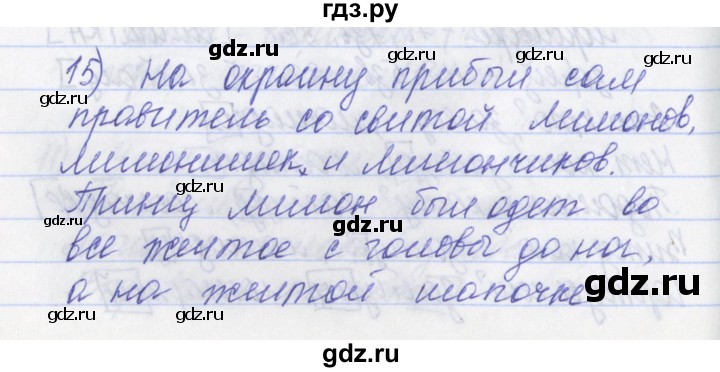 гдз.ру
gdz.ru gdz.ru
15) На окраину прибыл сам
gdz.ru gdz.ru
правитель со свитой Лимонов,
gdz.ru
лимонишек, и Лимончиков.
gdz.ru gdz.ru
Принц Лимон был одет во
gdz.ru
все желтое с головы до ног,
gdz.ru gdz.ru
а на желтой шапочке
gdz.ru
gdz.ru